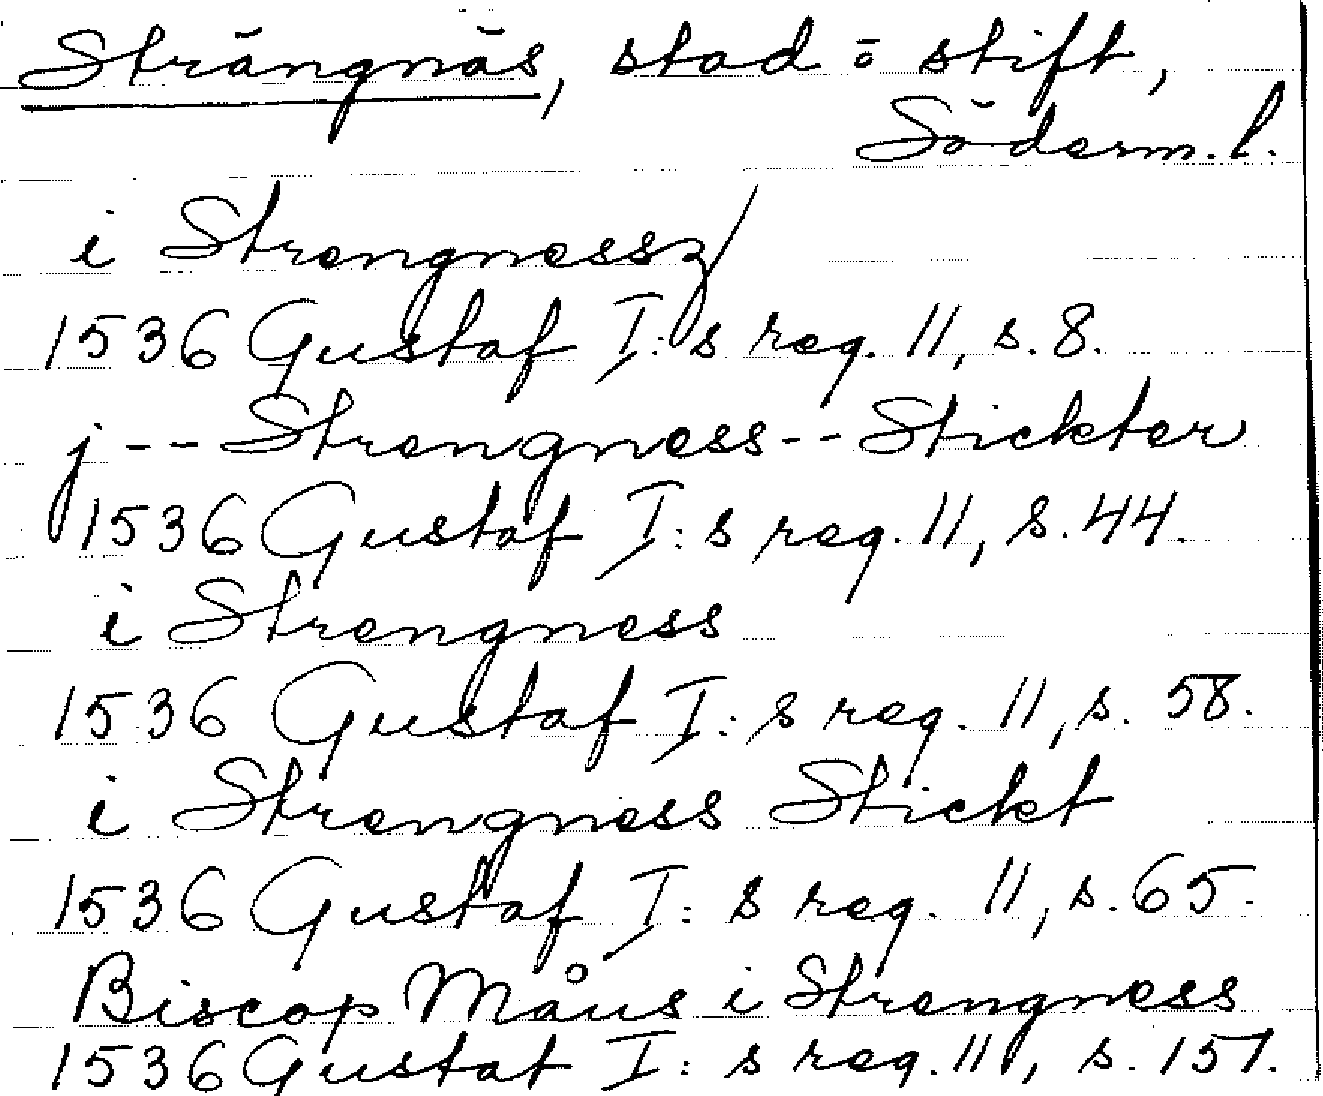 Strängnäs, stad o stift,
Söderm. l.
i Strengnessz
1536 Gustaf I:s reg. 11, s. 8.
j -- Strengness -- Stickter
1536 Gustaf I:s reg. 11, s. 44.
i Strengness
1536 Gustaf I:s reg. 11, s. 58.
i Strengness Stickt
1536 Gustaf I:s reg. 11, s. 65.
Biscop Måns i Strengness
1536 Gustaf I:s reg. 11, s. 151.